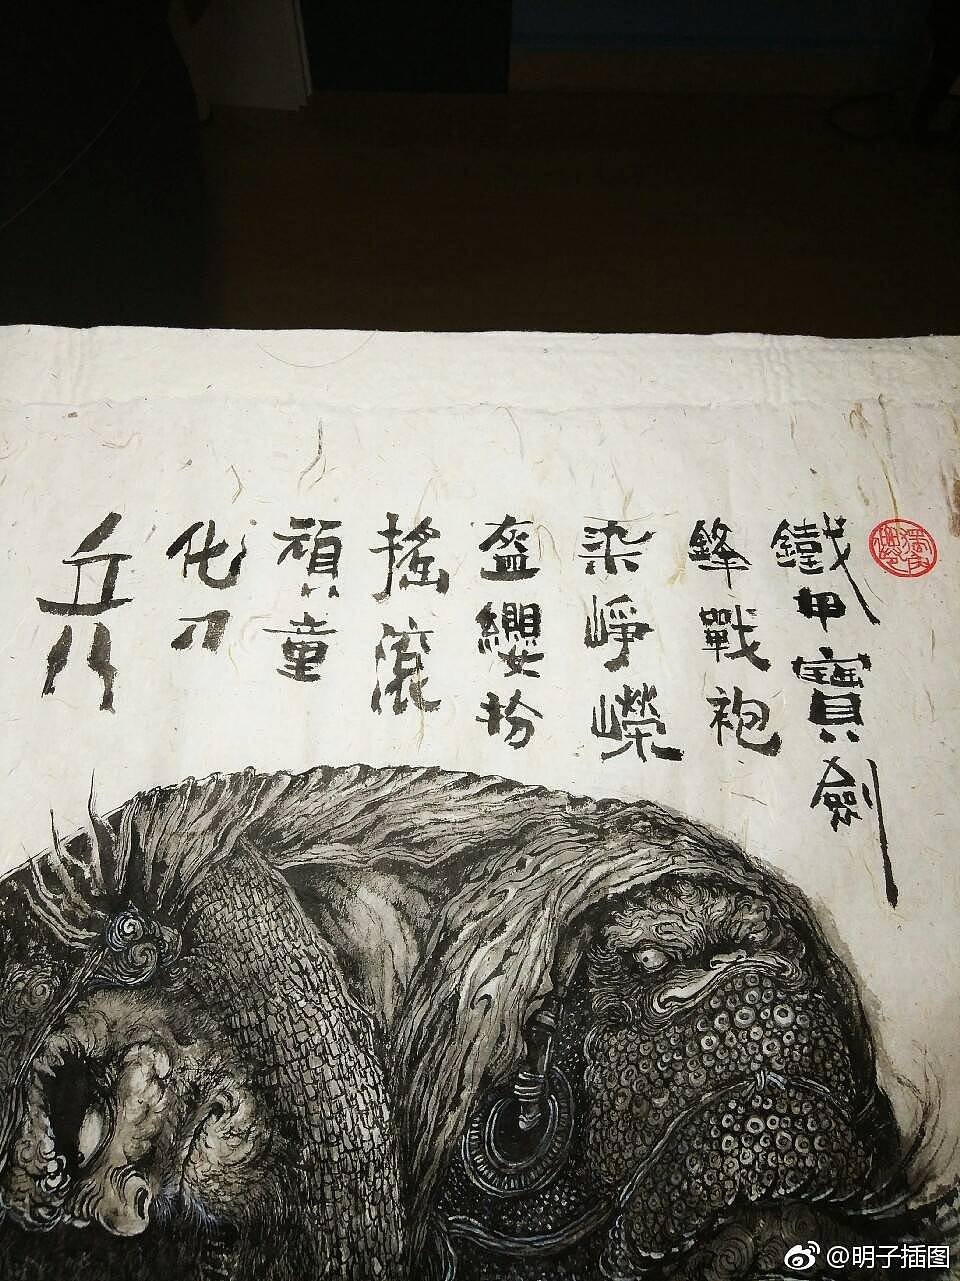 鐵甲寶劍
鋒戰袍
染崢嶸
盔纓扮
搖滾
頑童
化刀
兵
@明子插图